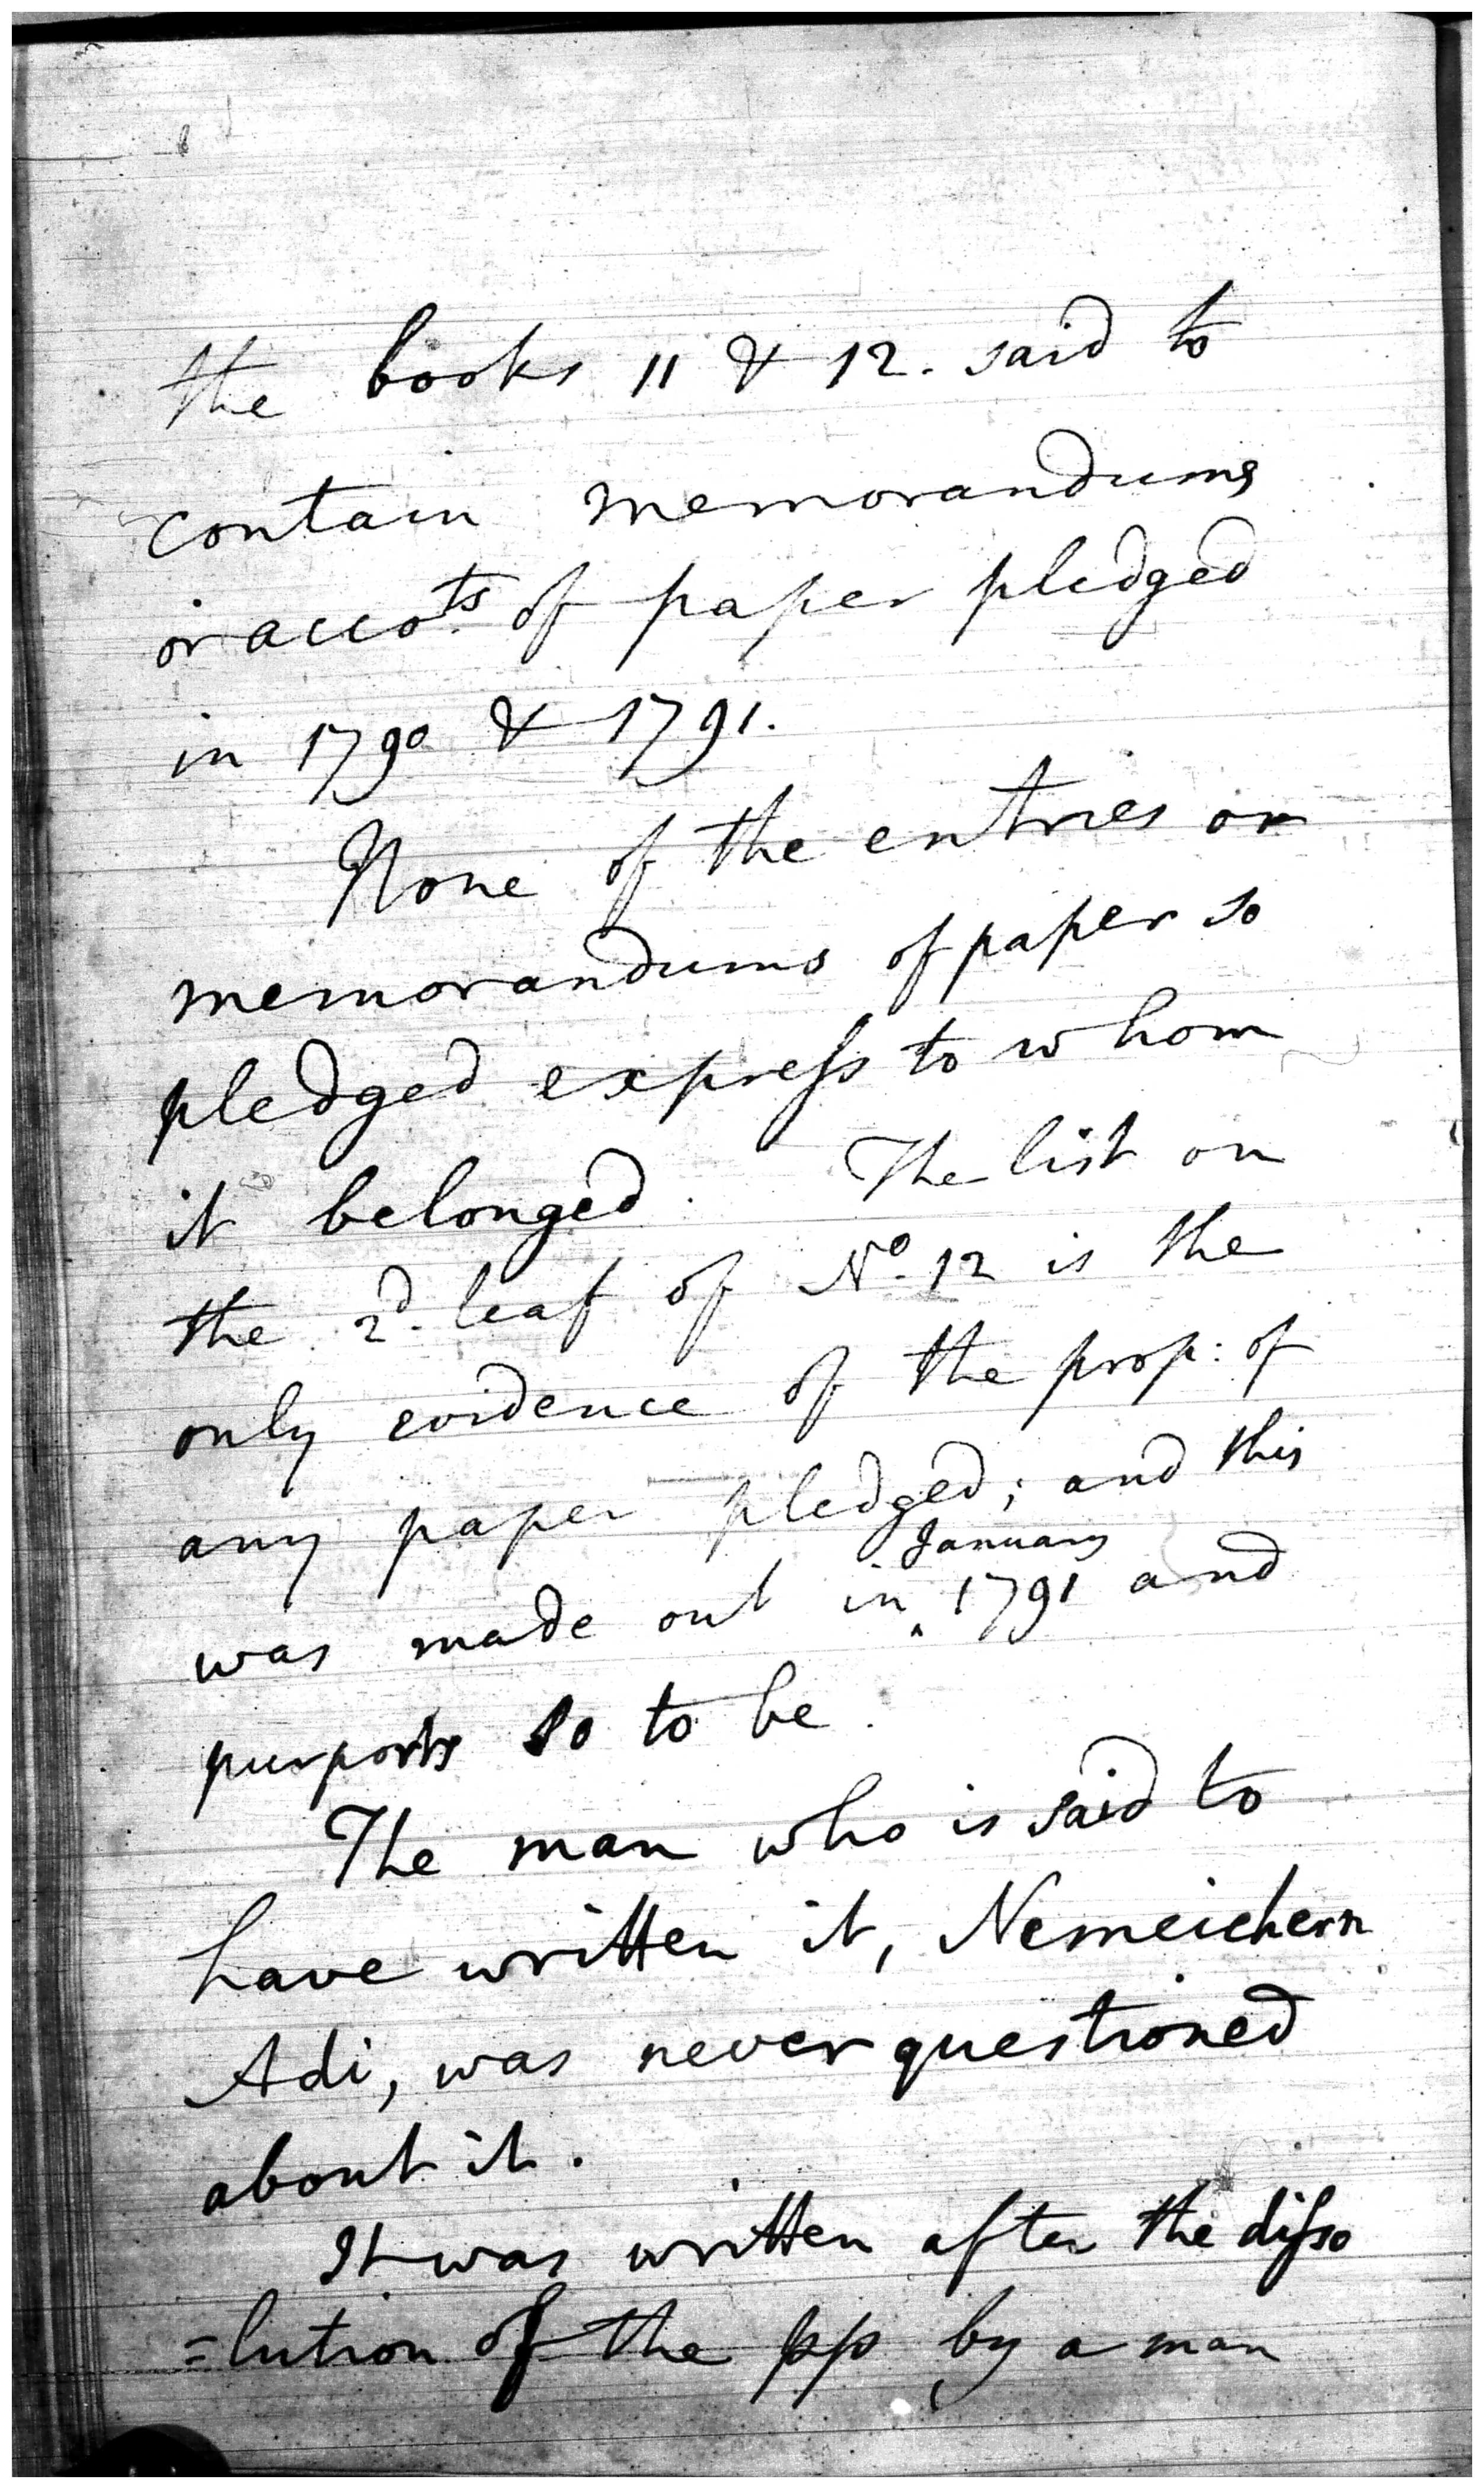 the books 11 & 12. said to
contain memorandums
or acco.ts of paper pledged
in 1790 & 1791.
None of the entries or
memorandums of paper so
pledged expreſs to whom
it belonged. The list on
the 2d. leaf of No. 12 is the
only evidence of the prop: of
any paper pledged; and this
January
was made out in ‸ 1791 and
purports so to be.
The man who is said to
have written it, Nemeichern
Adi, was never questioned
about it.
It was written after the diſso
=lution of the pp by a man